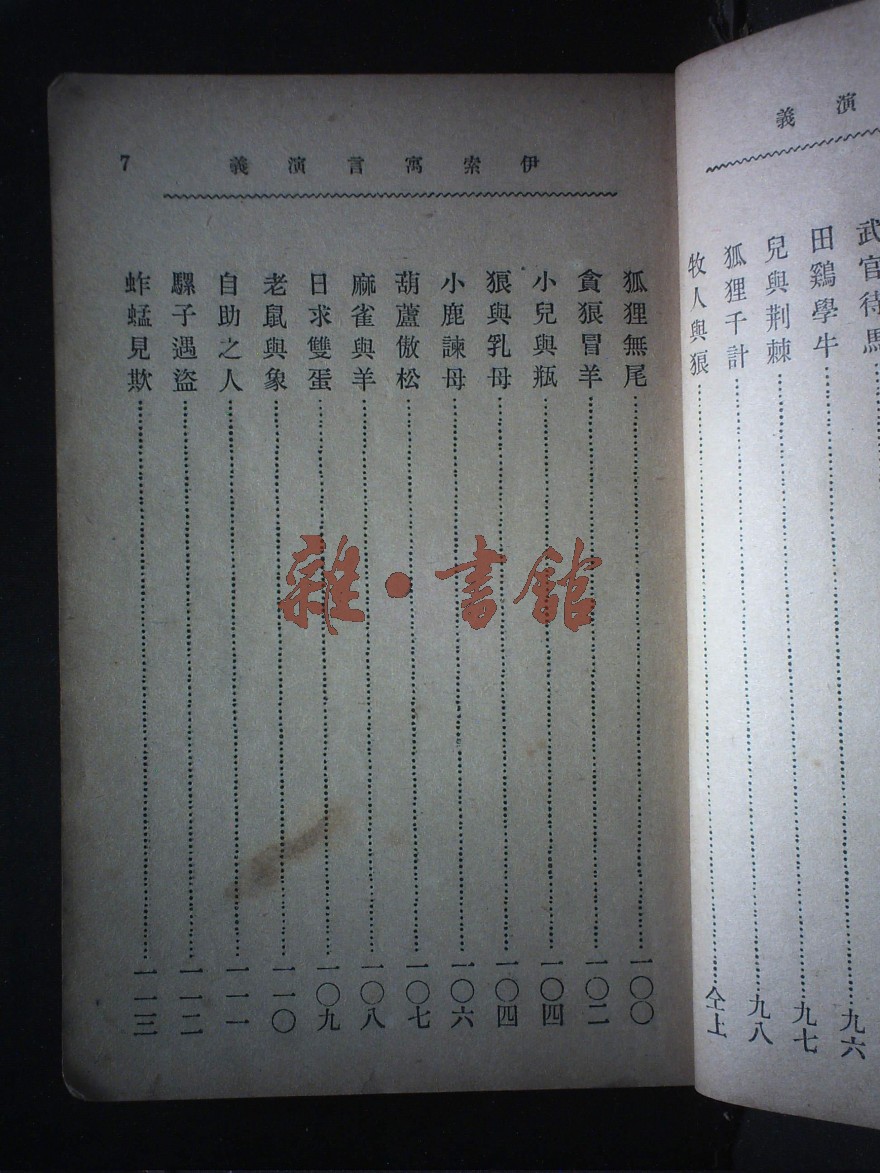 演義
武官待馬……九六
田鷄學牛……九七
兒與荆棘
狐狸千計……九八
牧人與狼……仝上
伊索寓言演義 7
狐狸無尾……一〇〇
貪狼冒羊……一〇二
小兒與瓶……一〇四
狼與乳母……一〇四
小鹿諫母……一〇六
葫蘆傲松……一〇七
麻雀與羊……一〇八
日求雙蛋……一〇九
老鼠與象……一一〇
自助之人……一一一
騾子遇盜……一一二
蚱蜢見欺……一一三
雜·書館